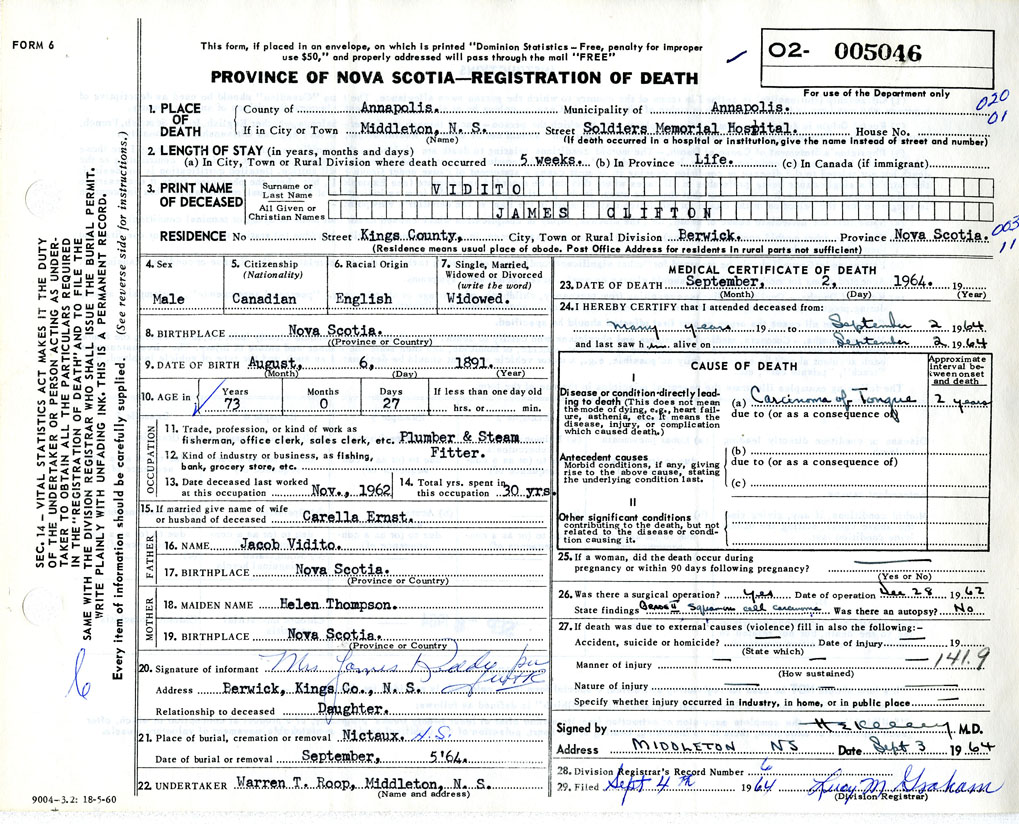 FORM 6
This form, if placed in an envelope, on which is printed "Dominion Statistics – Free, penalty for improper
use $50," and properly addressed will pass through the mail "FREE"
O2- 005046
For use of the Department only
PROVINCE OF NOVA SCOTIA—REGISTRATION OF DEATH
020
01
1. PLACE OF DEATH
County of Annapolis. Municipality of Annapolis.
If in City or Town Middleton, N. S. Street Soldiers Memorial Hospital. House No.
(Name) (If death occurred in a hospital or institution, give the name instead of street and number)
2. LENGTH OF STAY (in years, months and days)
(a) In City, Town or Rural Division where death occurred 5 weeks. (b) In Province Life. (c) In Canada (if immigrant)
3. PRINT NAME OF DECEASED
Surname or Last Name VIDITO
All Given or Christian Names JAMES CLIFTON
003
11
RESIDENCE No Street Kings County, City, Town or Rural Division Berwick. Province Nova Scotia.
(Residence means usual place of abode. Post Office Address for residents in rural parts not sufficient)
4. Sex
Male
5. Citizenship
(Nationality)
Canadian
6. Racial Origin
English
7. Single, Married,
Widowed or Divorced
(write the word)
Widowed.
8. BIRTHPLACE Nova Scotia.
(Province or Country)
9. DATE OF BIRTH August, 6, 1891.
(Month) (Day) (Year)
10. AGE in
Years Months Days If less than one day old
73 0 27 hrs. or min.
OCCUPATION
11. Trade, profession, or kind of work as
fisherman, office clerk, sales clerk, etc. Plumber & Steam
12. Kind of industry or business, as fishing, Fitter.
bank, grocery store, etc.
13. Date deceased last worked
at this occupation Nov., 1962
14. Total yrs. spent in
this occupation 30 yrs.
15. If married give name of wife
or husband of deceased Carella Ernst.
FATHER
16. NAME Jacob Vidito.
17. BIRTHPLACE Nova Scotia.
(Province or Country)
MOTHER
18. MAIDEN NAME Helen Thompson.
19. BIRTHPLACE Nova Scotia.
(Province or Country)
20. Signature of informant Mrs James
Address Berwick, Kings Co., N. S.
Relationship to deceased Daughter.
21. Place of burial, cremation or removal Nictaux. N.S.
Date of burial or removal September, 5'64.
22. UNDERTAKER Warren T. Roop, Middleton, N. S.
(Name and address)
9004–3.2: 18-5-60
MEDICAL CERTIFICATE OF DEATH
23. DATE OF DEATH September, 2, 1964. 19
(Month) (Day) (Year)
24. I HEREBY CERTIFY that I attended deceased from
many years 19 to September 2 1964
and last saw him alive on September 2 1964
CAUSE OF DEATH
Approximate
interval be-
tween onset
and death
I
Disease or condition directly lead-
ing to death (This does not mean
the mode of dying, e.g., heart fail-
ure, asthenia, etc. It means the
disease, injury, or complication
which caused death.)
(a) Carcinoma of Tongue 2 years
due to (or as a consequence of)
Antecedent causes
Morbid conditions, if any, giving
rise to the above cause, stating
the underlying condition last.
(b)
due to (or as a consequence of)
(c)
II
Other significant conditions
contributing to the death, but not
related to the disease or condi-
tion causing it.
25. If a woman, did the death occur during
pregnancy or within 90 days following pregnancy?
(Yes or No)
26. Was there a surgical operation? yes Date of operation Dec 28 1962
State findings Grade II Squamous cell carcinoma Was there an autopsy? No
27. If death was due to external causes (violence) fill in also the following:–
Accident, suicide or homicide? Date of injury 19
(State which)
Manner of injury 141.9
(How sustained)
Nature of injury
Specify whether injury occurred in industry, in home, or in public place
Signed by M.D.
Address MIDDLETON NS Date Sept 3 1964
28. Division Registrar's Record Number 6
29. Filed Sept 4th 1964 Lucy M Graham
(Division Registrar)
SEC. 14 – VITAL STATISTICS ACT MAKES IT THE DUTY
OF THE UNDERTAKER OR PERSON ACTING AS UNDER-
TAKER TO OBTAIN ALL THE PARTICULARS REQUIRED
IN THE "REGISTRATION OF DEATH" AND TO FILE THE
SAME WITH THE DIVISION REGISTRAR WHO SHALL ISSUE THE BURIAL PERMIT.
WRITE PLAINLY WITH UNFADING INK. THIS IS A PERMANENT RECORD.
Every item of information should be carefully supplied. (See reverse side for instructions.)
6